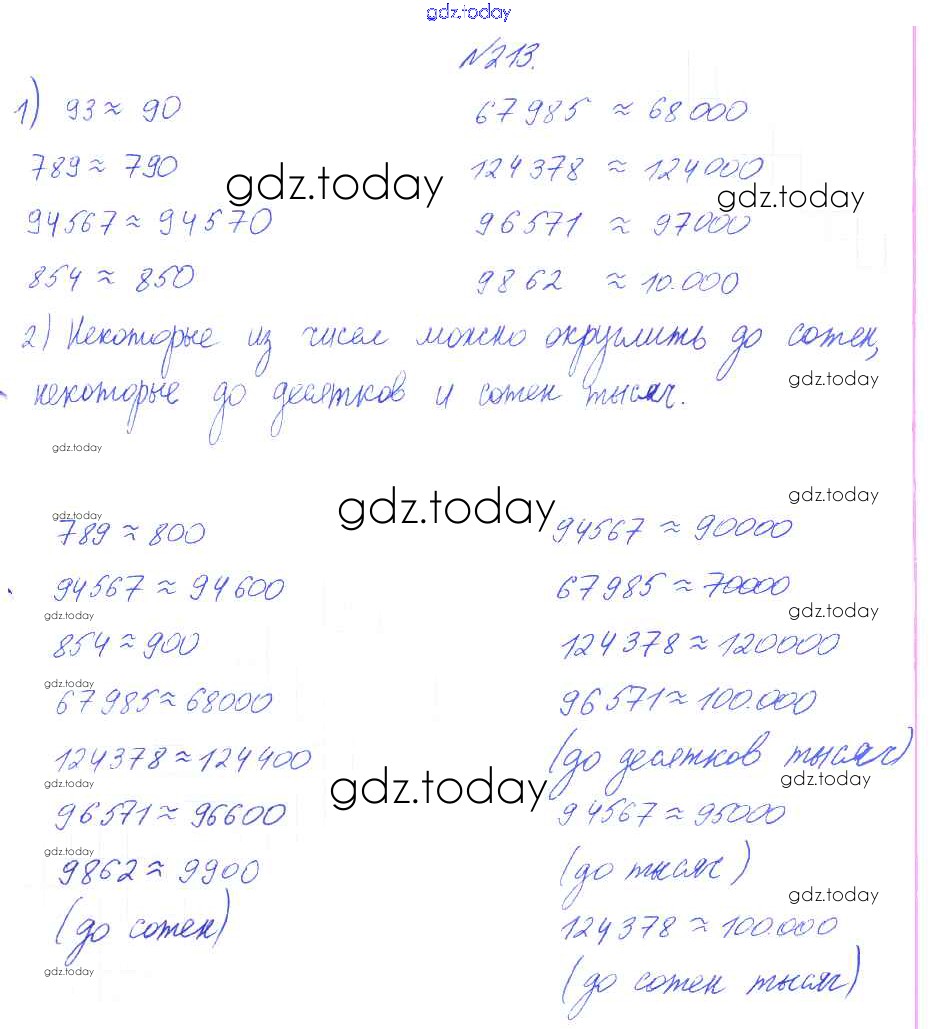 gdz.today
№213.
1) 93 ≈ 90
789 ≈ 790
94567 ≈ 94570
854 ≈ 850
67985 ≈ 68000
124378 ≈ 124000
96571 ≈ 97000
9862 ≈ 10.000
gdz.today
gdz.today
2) Некоторые из чисел можно округлить до сотен,
некоторые до десятков и сотен тысяч.
gdz.today
gdz.today
gdz.today
gdz.today
gdz.today
789 ≈ 800
94567 ≈ 94600
gdz.today
854 ≈ 900
gdz.today
67985 ≈ 68000
124378 ≈ 124400
gdz.today
96571 ≈ 96600
gdz.today
9862 ≈ 9900
(до сотен)
gdz.today
gdz.today
94567 ≈ 90000
67985 ≈ 70000
gdz.today
124378 ≈ 120000
96571 ≈ 100.000
(до десятков тысяч)
gdz.today
94567 ≈ 95000
(до тысяч)
gdz.today
124378 ≈ 100.000
(до сотен тысяч)